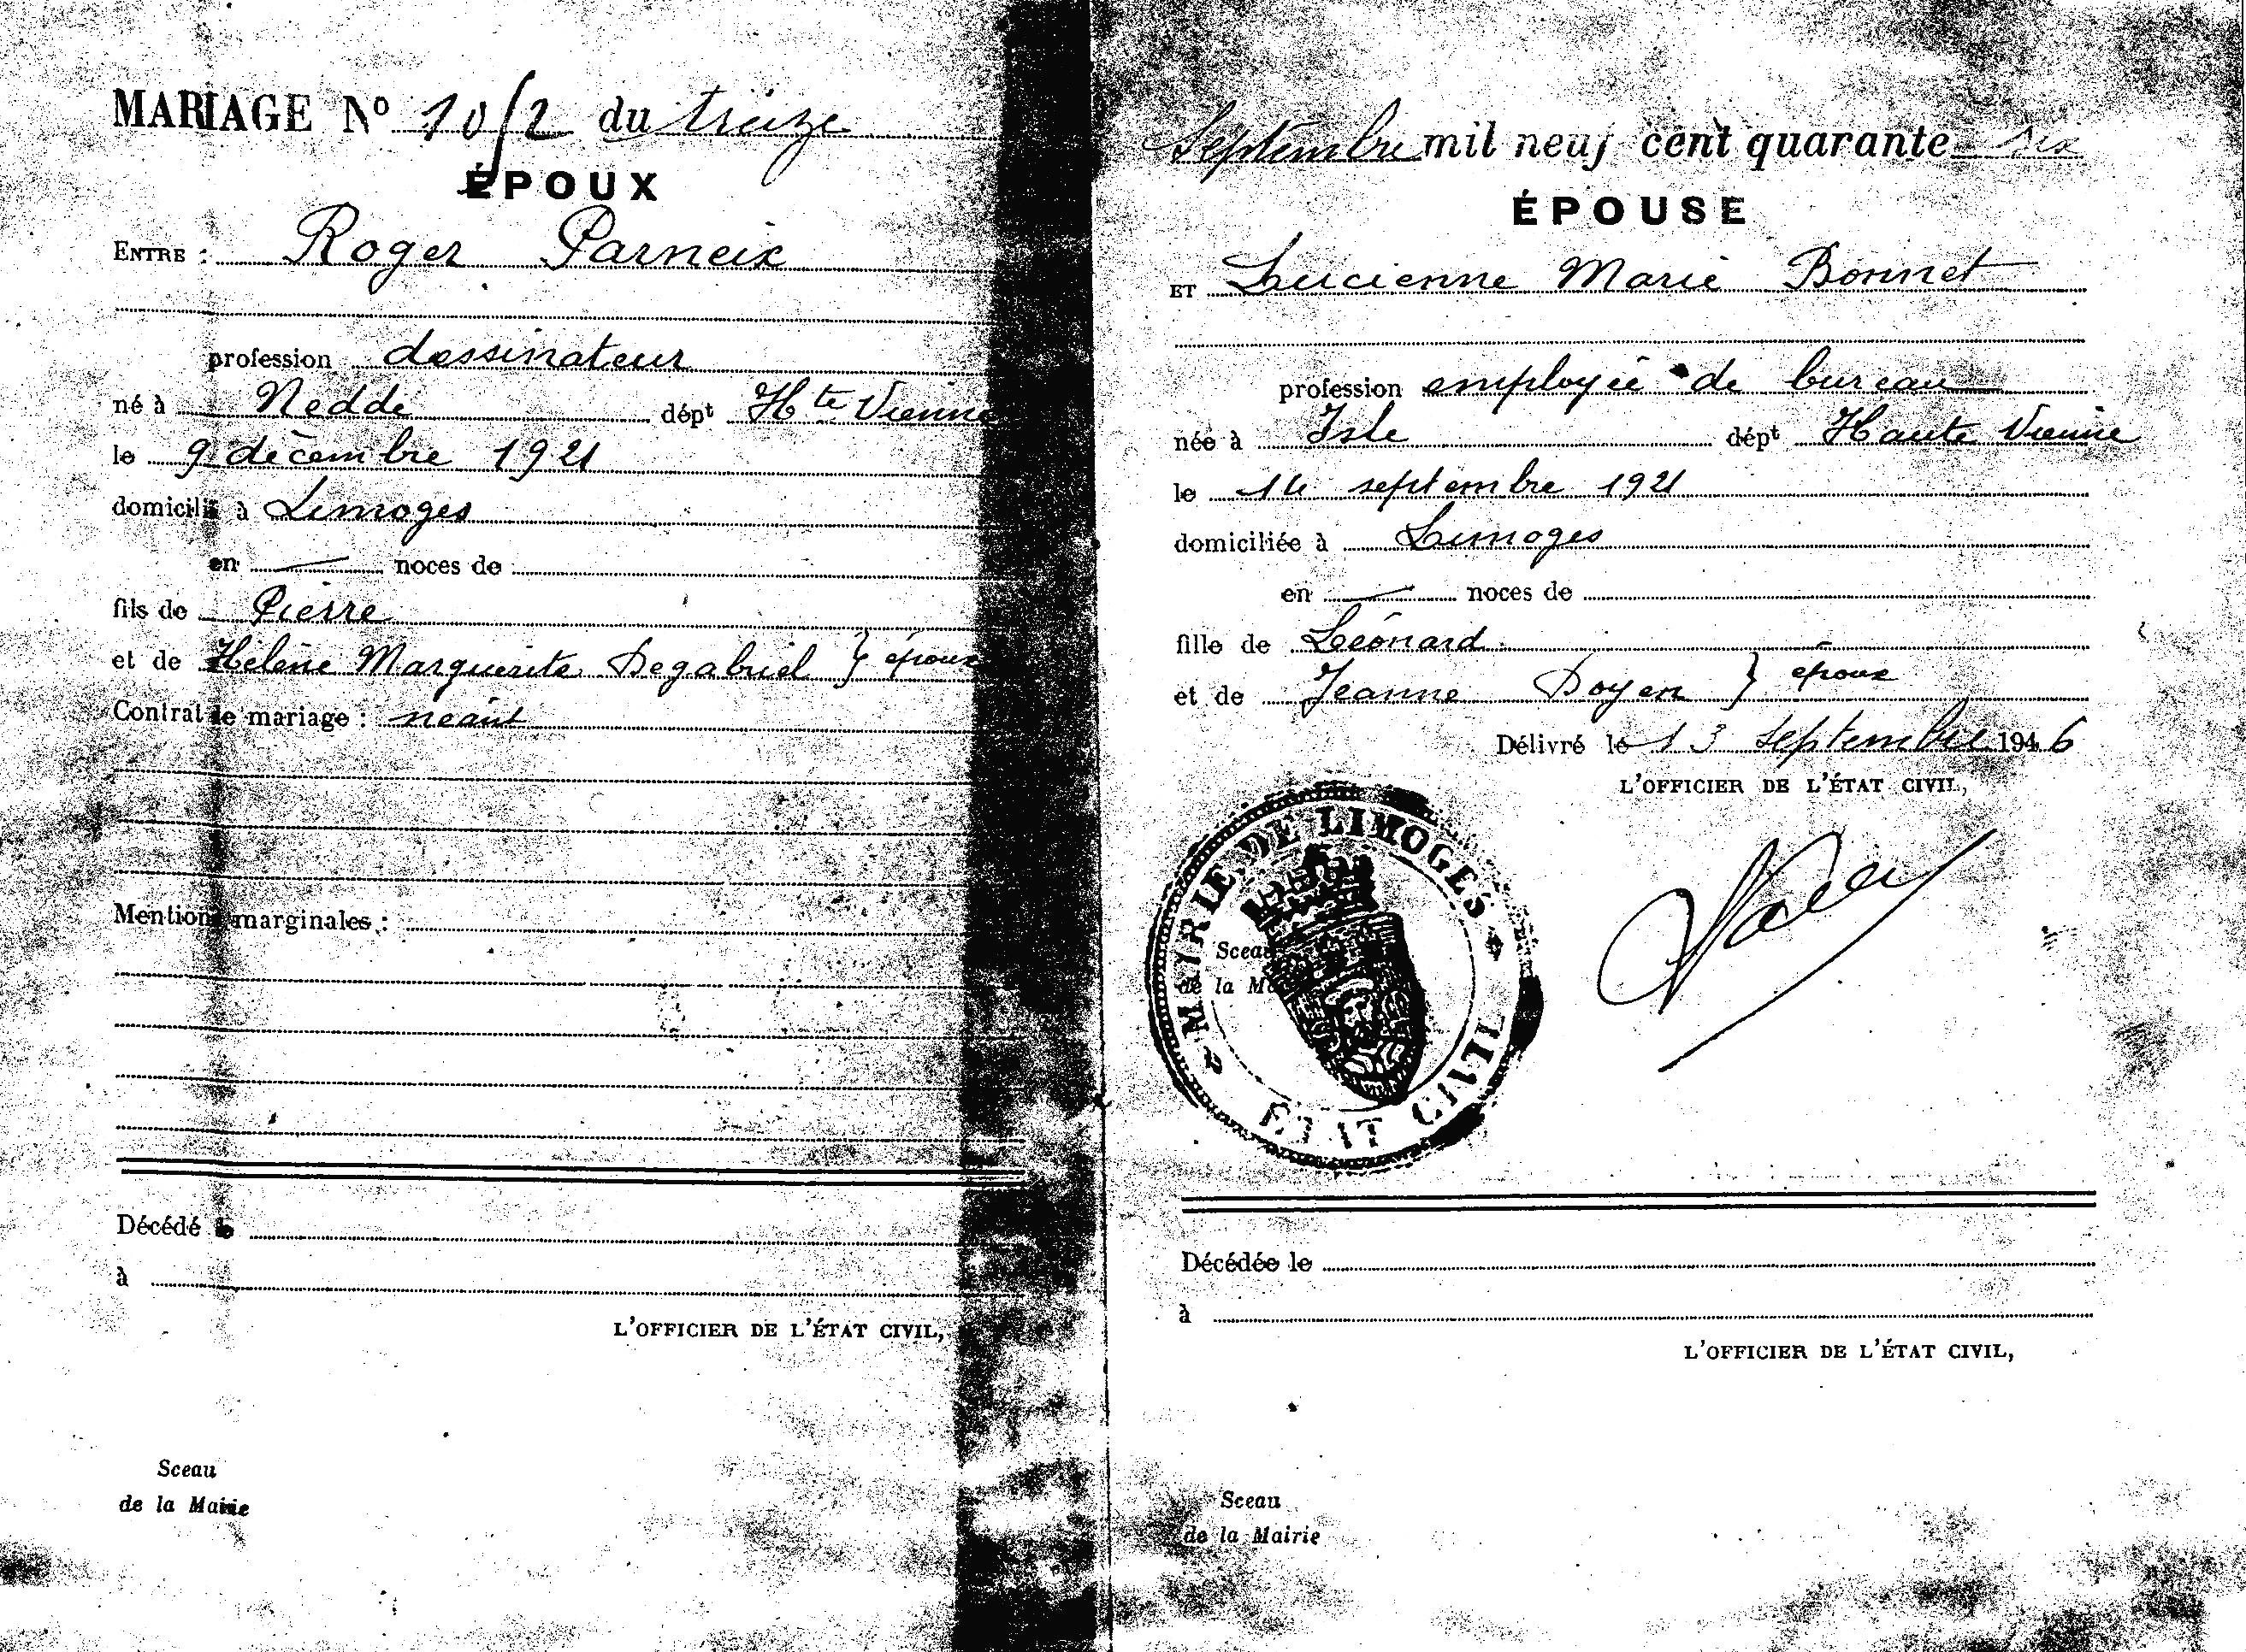 MARIAGE Nº 10/2 du treize
ÉPOUX
ENTRE : Roger Parneix
profession dessinateur
né à Nedde dépt Hte Vienne
le 9 décembre 1921
domicilié à Limoges
en — noces de
fils de Pierre
et de Hélène Marguerite Degabriel } époux
Contrat de mariage : néant
Mentions marginales :
Décédé le
à
L'OFFICIER DE L'ÉTAT CIVIL,
Sceau
de la Mairie
Septembre mil neuf cent quarante six
ÉPOUSE
ET Lucienne Marie Bonnet
profession employée de bureau
née à Isle dépt Haute Vienne
le septembre 1921
domiciliée à Limoges
en — noces de
fille de Léonard
et de Jeanne Doyen } époux
Délivré le 13 Septembre 1946
L'OFFICIER DE L'ÉTAT CIVIL,
MAIRIE DE LIMOGES
ÉTAT CIVIL
Sceau
de la
Décédée le
à
L'OFFICIER DE L'ÉTAT CIVIL,
Sceau
de la Mairie